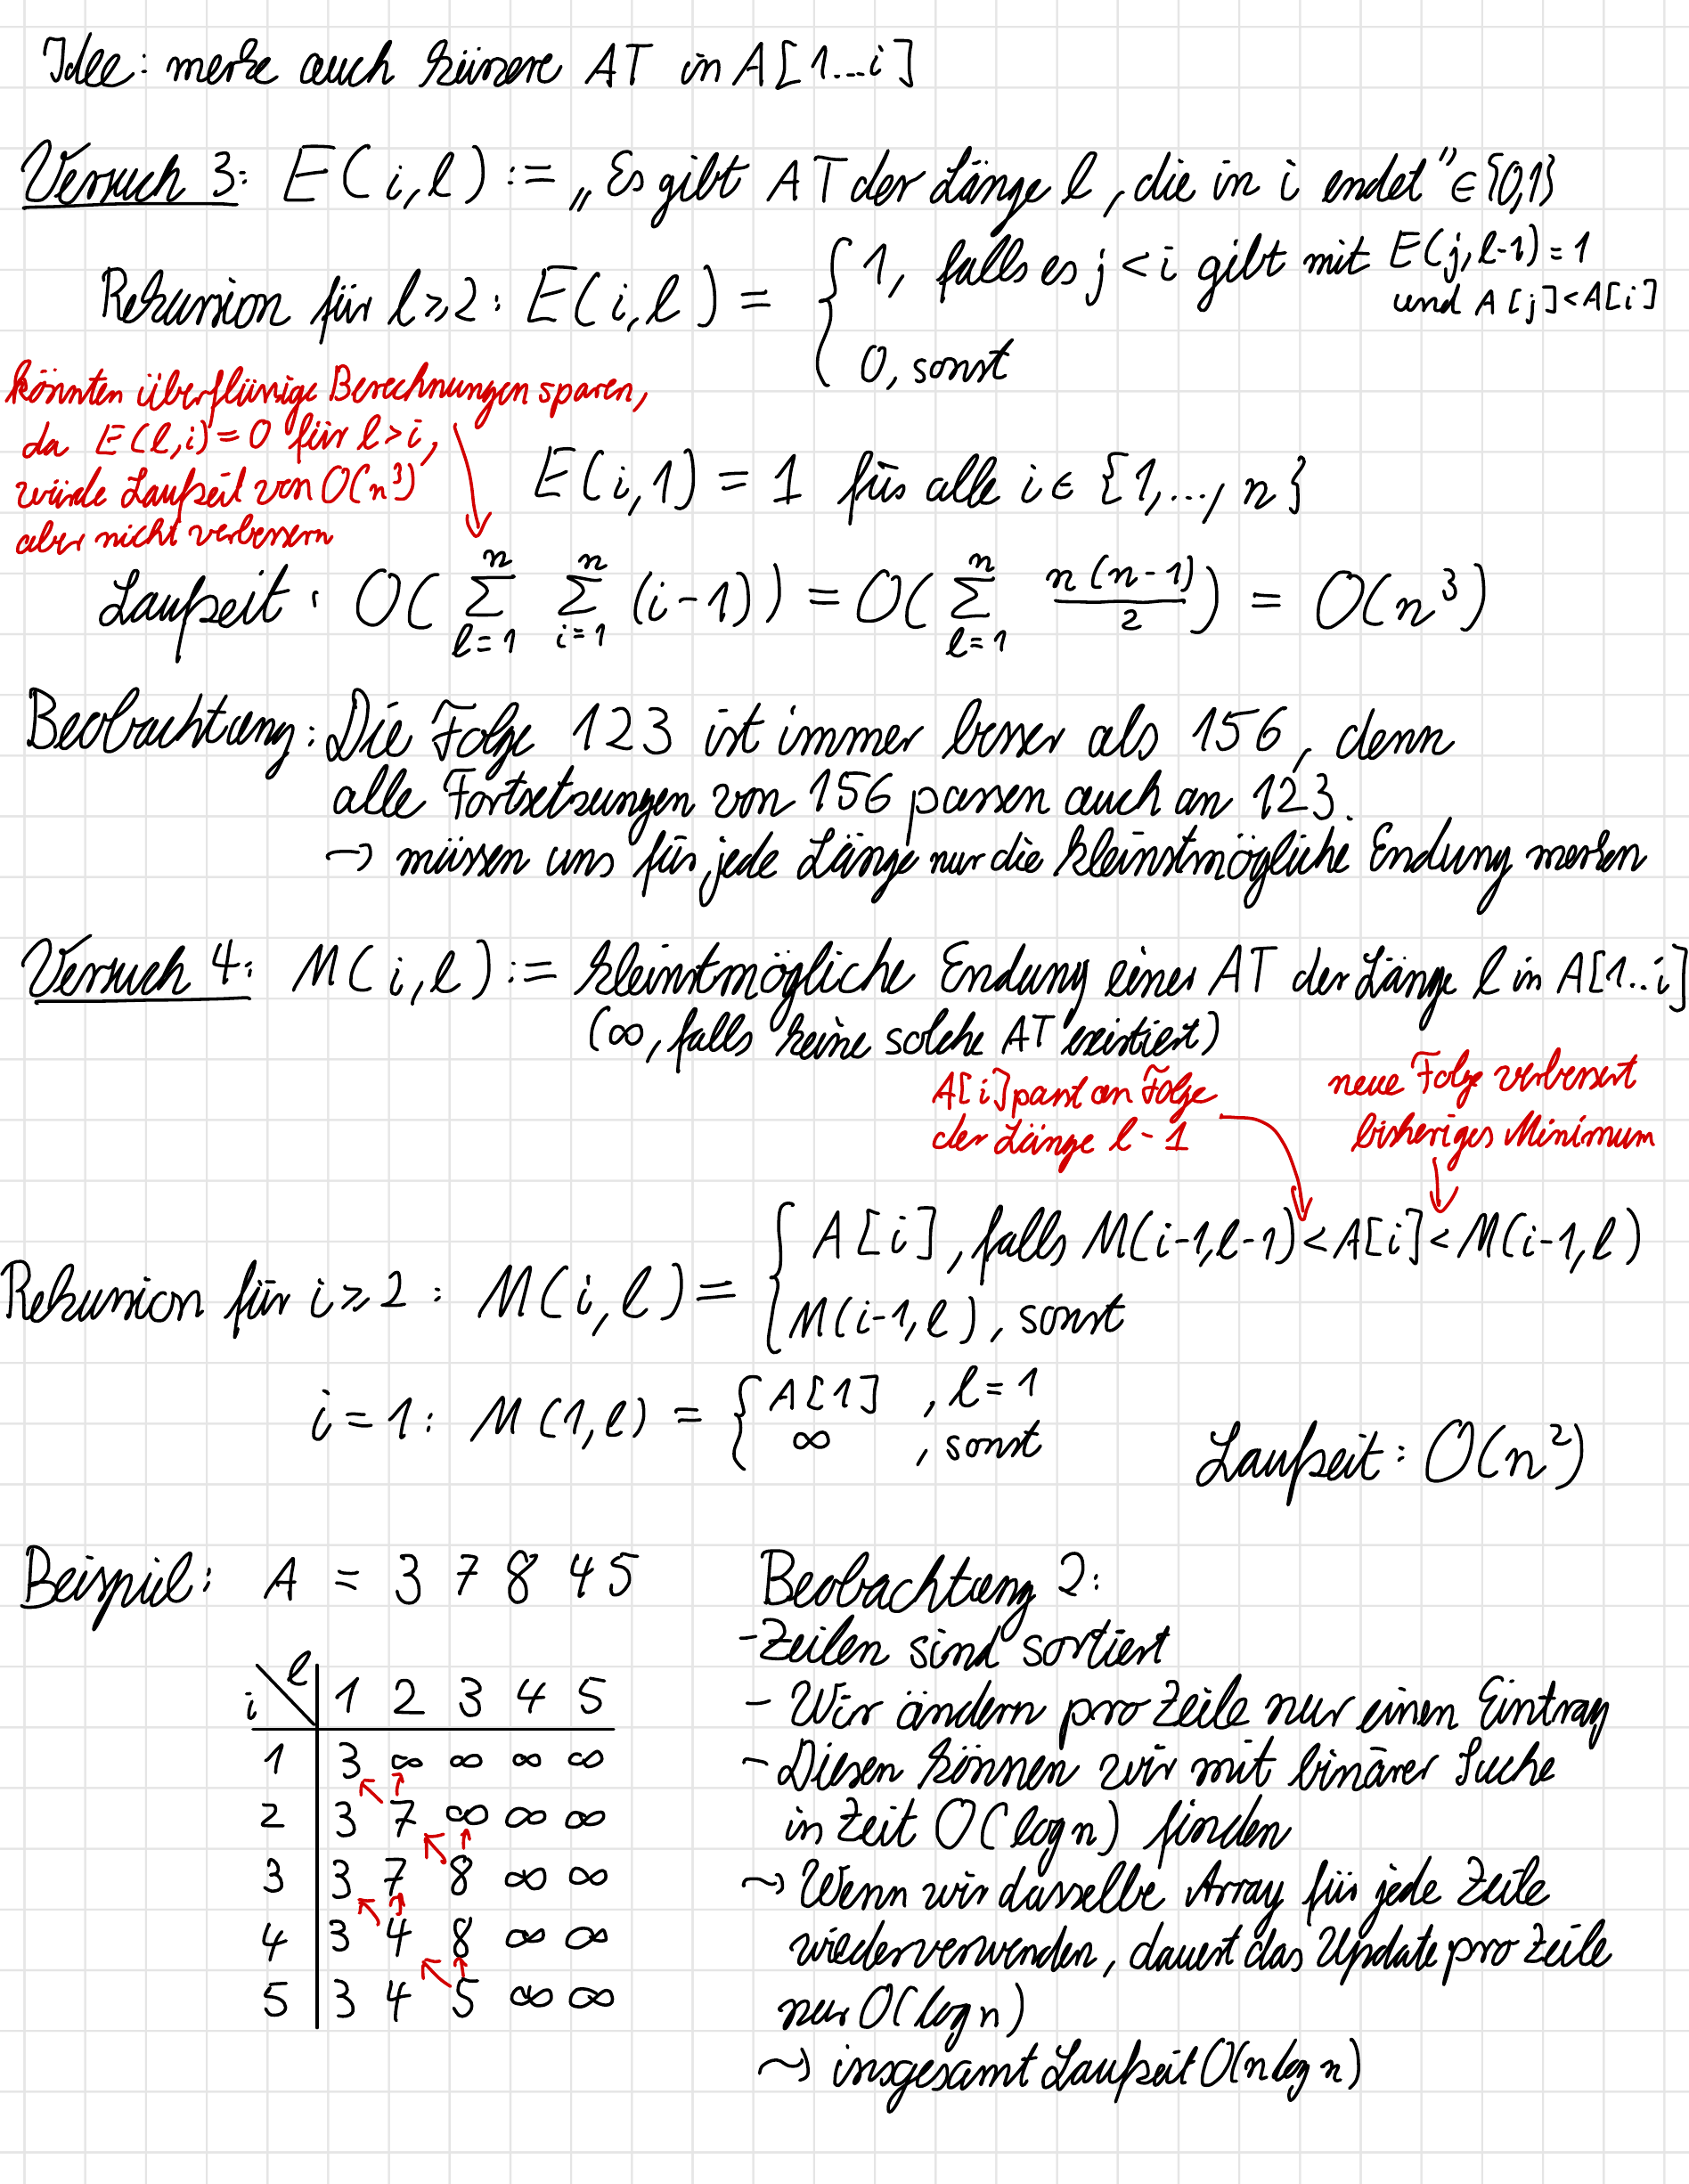 Idee: merke auch kürzere AT in A[1...i]
Versuch 3: E(i,l) := „Es gibt AT der Länge l, die in i endet" ∈ {0,1}
Rekursion für l ≥ 2: E(i,l) = { 1, falls es j < i gibt mit E(j,l-1) = 1 und A[j] < A[i]
0, sonst
könnten überflüssige Berechnungen sparen,
da E(l,i) = 0 für l > i,
würde Laufzeit von O(n³)
aber nicht verbessern
E(i,1) = 1 für alle i ∈ {1,..., n}
Laufzeit: O( ∑_{l=1}^{n} ∑_{i=1}^{n} (i-1)) = O( ∑_{l=1}^{n} n(n-1)/2 ) = O(n³)
Beobachtung: Die Folge 123 ist immer besser als 156, denn
alle Fortsetzungen von 156 passen auch an 123.
→ müssen uns für jede Länge nur die kleinstmögliche Endung merken
Versuch 4: M(i,l) := kleinstmögliche Endung einer AT der Länge l in A[1..i]
(∞, falls keine solche AT existiert)
A[i] passt an Folge
der Länge l-1
neue Folge verbessert
bisheriges Minimum
Rekursion für i ≥ 2: M(i,l) = { A[i], falls M(i-1,l-1) < A[i] < M(i-1,l)
M(i-1,l), sonst
i = 1: M(1,l) = { A[1] , l = 1
∞ , sonst
Laufzeit: O(n²)
Beispiel: A = 3 7 8 4 5
i \ l | 1 2 3 4 5
1 | 3 ∞ ∞ ∞ ∞
2 | 3 7 ∞ ∞ ∞
3 | 3 7 8 ∞ ∞
4 | 3 4 8 ∞ ∞
5 | 3 4 5 ∞ ∞
Beobachtung 2:
- Zeilen sind sortiert
- Wir ändern pro Zeile nur einen Eintrag
- Diesen können wir mit binärer Suche
in Zeit O(log n) finden
⤳ Wenn wir dasselbe Array für jede Zeile
wiederverwenden, dauert das Update pro Zeile
nur O(log n)
⤳ insgesamt Laufzeit O(n log n)